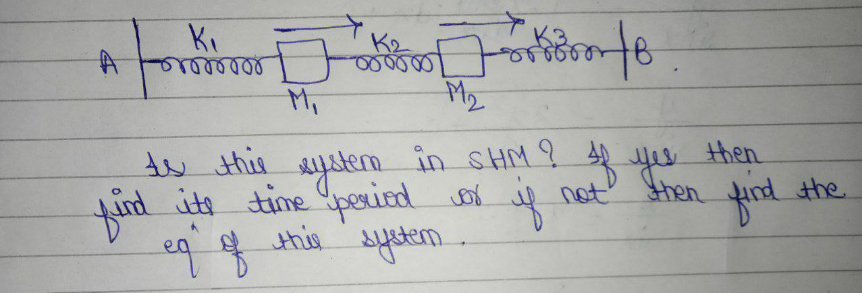 K1 K2 K3
A B.
M1 M2
Is this system in SHM? If yes then
find its time period or if not then find the
eqn of this system.